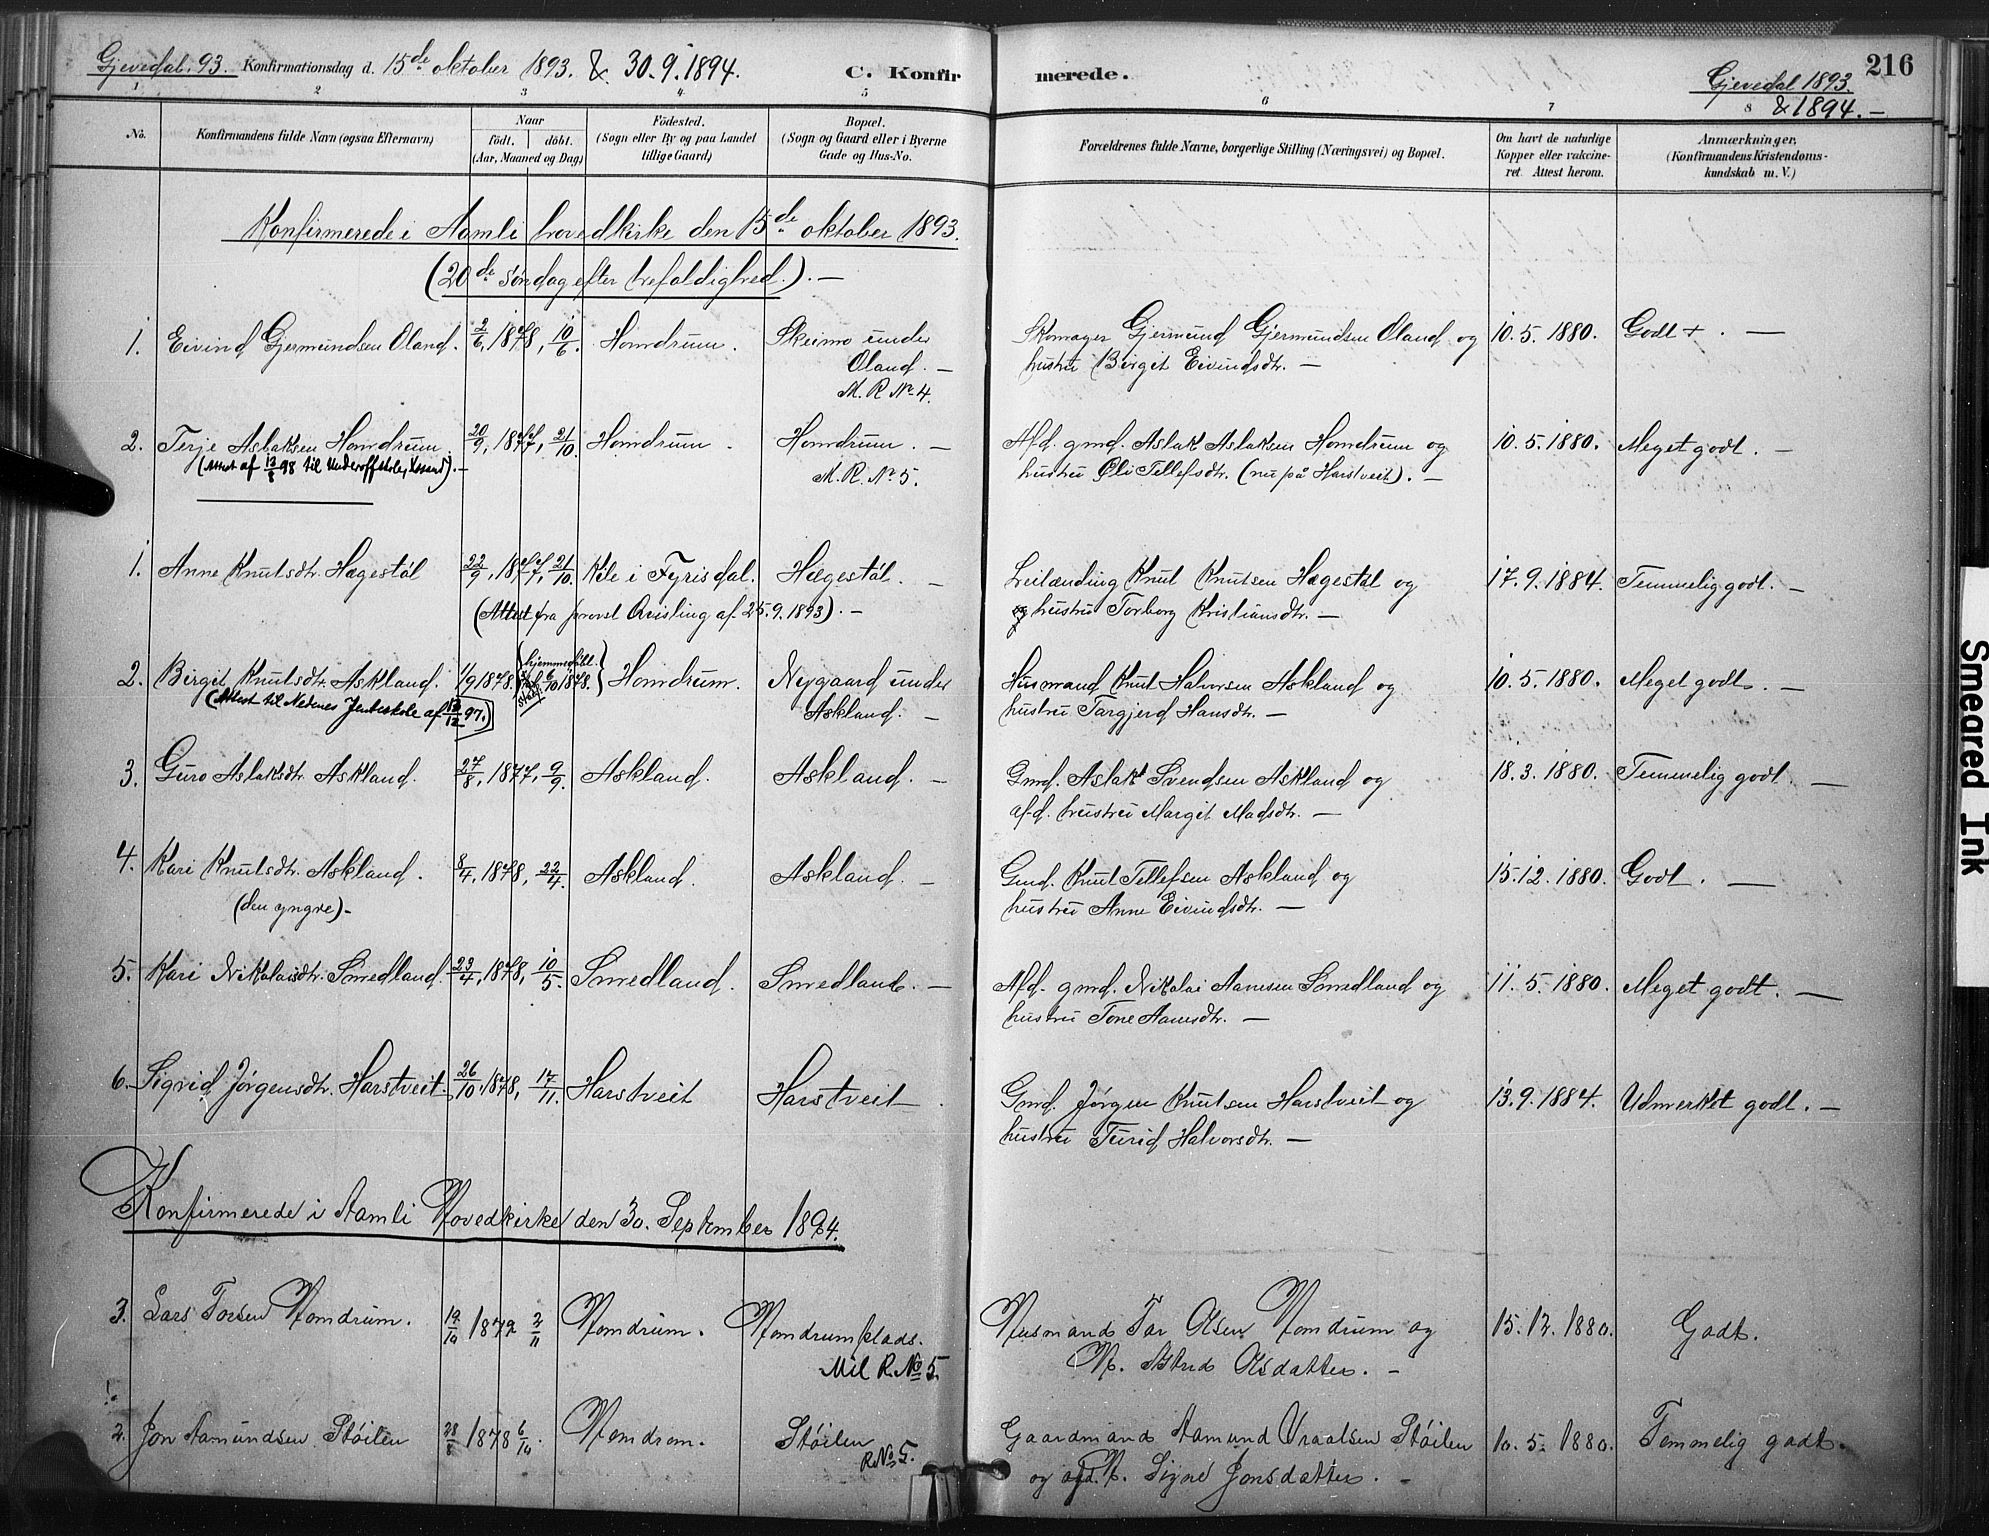 Gjevedal. 93. Konfirmationsdag d. 15de oktober 1893. & 30.9.1894. C. Konfirmerede. Gjevedal 1893. & 1894.— 216
1 2 3 4 5 6 7 8
No. Konfirmandens fulde Navn (ogsaa Efternavn) Naar födt. döbt. (Aar, Maaned og Dag) Födested. (Sogn eller By og paa Landet tillige Gaard) Bopæl. (Sogn og Gaard eller i Byerne Gade og Hus-No. Forældrenes fulde Navne, borgerlige Stilling (Næringsvei) og Bopæl. Om havt de naturlige Kopper eller vakcineret. Attest herom. Anmærkninger, (Konfirmandens Kristendomskundskab m. V.)
Konfirmerede i Aamli hovedkirke den 15de oktober 1893.
(20de søndag efter trefoldighed.).—
1. Eivind Gjermundsen Oland. 2/6, 1878, 10/6. Homdrum. Skeimo under Skomager Gjermund Gjermundsen Oland og 10.5.1880. Godt +. —
Oland. — hustru Birgit Eivindsdtr. —
M. R. No 4.
2. Terje Aslaksen Homdrum 20/9, 1877, 21/10. Homdrum. Homdrum. — Afd. gmd. Aslak Aslaksen Homdrum og 10.5.1880. Meget godt. —
(Attest af 13/8 98 til Underoffskole, Xsand). — M. R. No 5. hustru Oli Tellefsdtr. (nu på Harstveit). —
1. Anne Knutsdtr. Hægestøl 22/9, 1877, 21/10. Kile i Fyrisdal. Hægestøl. — Leilænding Knut Knutsen Hægestøl og 17.9.1884. Temmelig godt. —
(Attest fra provst Qvisling af 25.9.1893). — og hustru Torborg Kristiansdtr. —
2. Birgit Knutsdtr. Askland. 1/9 1878. (hjemmedøbt. 6/10 1878.) Homdrum. Nygaard under Husmand Knut Halvorsen Askland og 10.5.1880. Meget godt. —
(Attest til Nedenes Jenteskole af 13/12 97.) Askland. — hustru Targjerd Hansdtr. —
3. Guro Aslaksdtr. Askland. 27/8, 1877, 9/9. Askland. Askland. — Gmd. Aslak Svendsen Askland og 18.3.1880. Temmelig godt. —
afd. hustru Margit Madsdtr. —
4. Kari Knutsdtr. Askland. 8/4, 1878, 22/4. Askland. Askland. — Gmd. Knut Tellefsen Askland og 15.12.1880. Godt. —
(den yngre)- hustru Anne Eivindsdtr. —
5. Kari Nikolaisdtr. Smedland. 23/4, 1878, 10/5. Smedland. Smedland. — Afd. gmd. Nikolai Aamsen Smedland og 11.5.1880. Meget godt. —
hustru Tone Aamsdtr. —
6. Sigrid Jørgensdtr. Harstveit. 26/10, 1878, 17/11. Harstveit Harstveit. Gmd. Jørgen Knutsen Harstveit og 13.9.1884. Udmerket godt. —
hustru Turid Halvorsdtr. —
Konfirmerede i Aamli Hovedkirke den 30. September 1894.
3. Lars Torsen Homdrum. 19/10 1879 2/11 Homdrum. Homdrumplads. Husmand Tor Olsen Homdrum og 15.12.1880. Godt.
Mil R. No 5. H. Astrid Olsdatter. —
2. Jon Aamundsen Støilen 28/8 1878 6/10. Homdrom. Støilen Gaardmand Aamund Vraalsen Støilen 10.5.1880. Temmelig godt.
R. No 5. og afd. H. Signe Jonsdatter. —
Smeared Ink